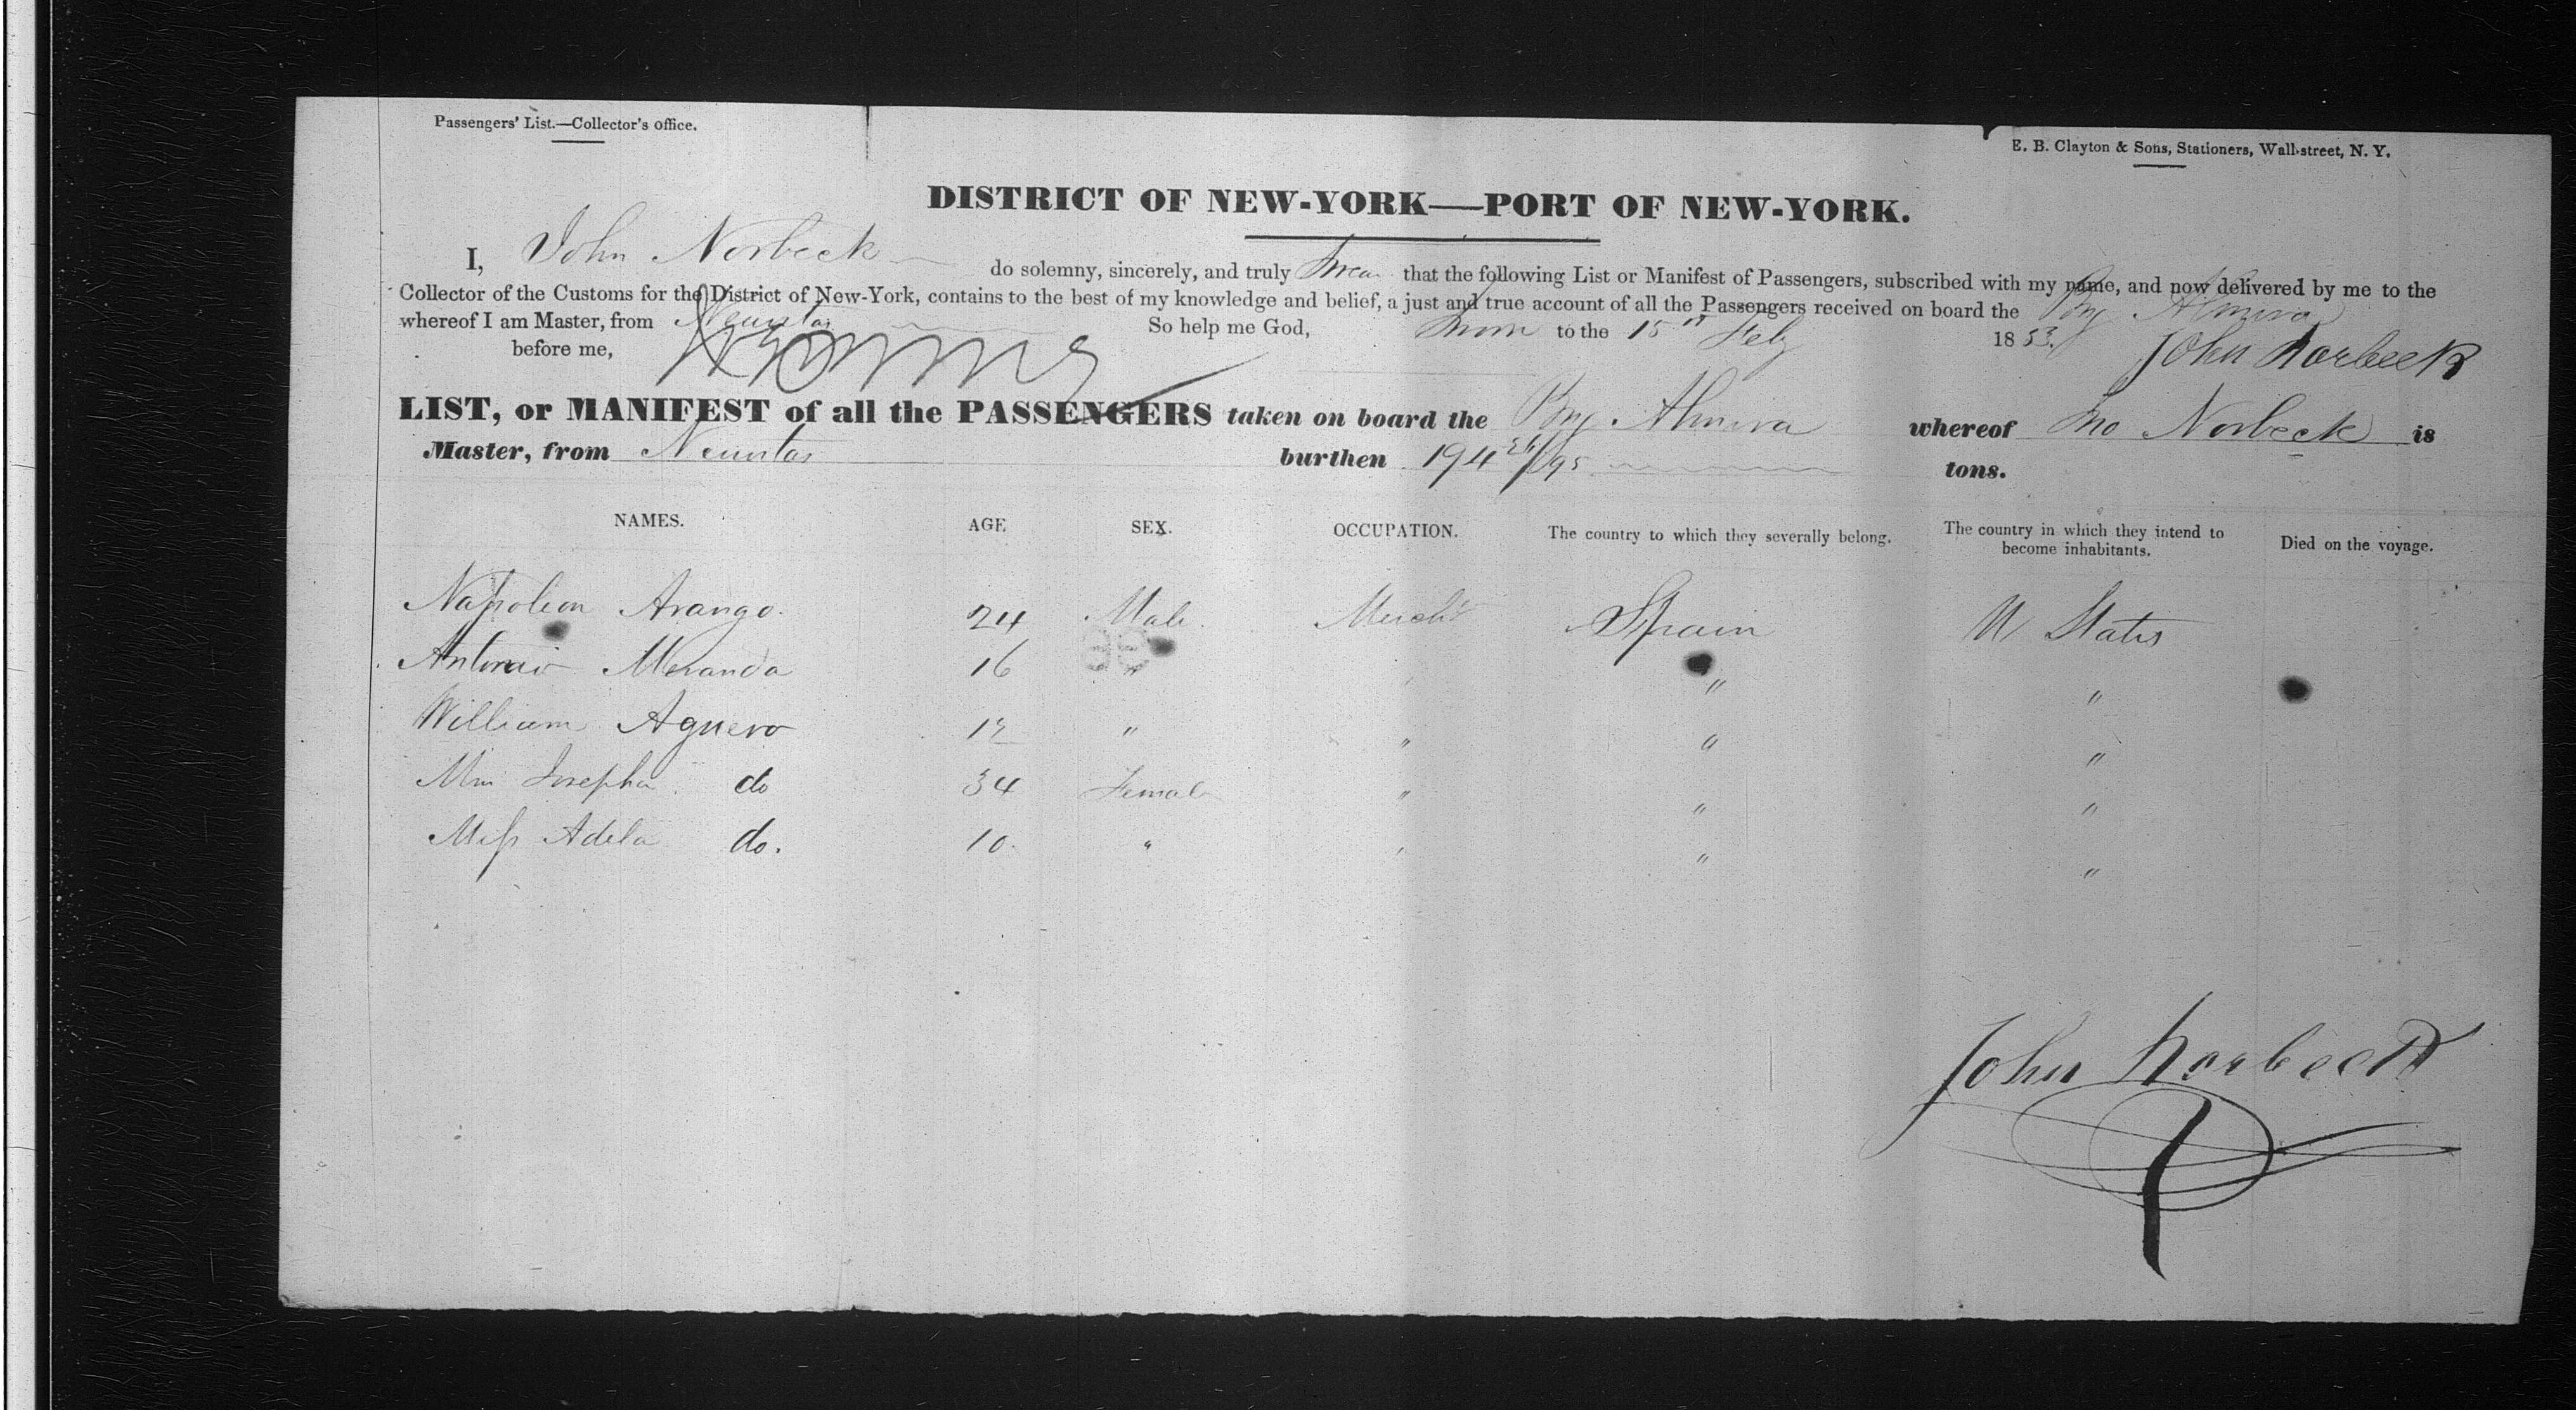 Passengers' List.—Collector's office.
E. B. Clayton & Sons, Stationers, Wall-street, N. Y.
DISTRICT OF NEW-YORK—PORT OF NEW-YORK.
I, John Norbeck do solemny, sincerely, and truly Swear that the following List or Manifest of Passengers, subscribed with my name, and now delivered by me to the
Collector of the Customs for the District of New-York, contains to the best of my knowledge and belief, a just and true account of all the Passengers received on board the Brig Almira
whereof I am Master, from Neuvitas So help me God, Sworn to the 15th Feby 1853.
before me, John Norbeck
LIST, or MANIFEST of all the PASSENGERS taken on board the Brig Almira whereof Jno Norbeck is
Master, from Neuvitas burthen 194 26/95 tons.
NAMES. AGE SEX. OCCUPATION. The country to which they severally belong. The country in which they intend to become inhabitants. Died on the voyage.
Napoleon Arango. 24 Male. Mercht Spain U States
Antonio Meranda 16 " " "
William Aguero " " " "
Mrs Josepha do 34 Female " " "
Miss Adela do. 10. " " " "
John Norbeck